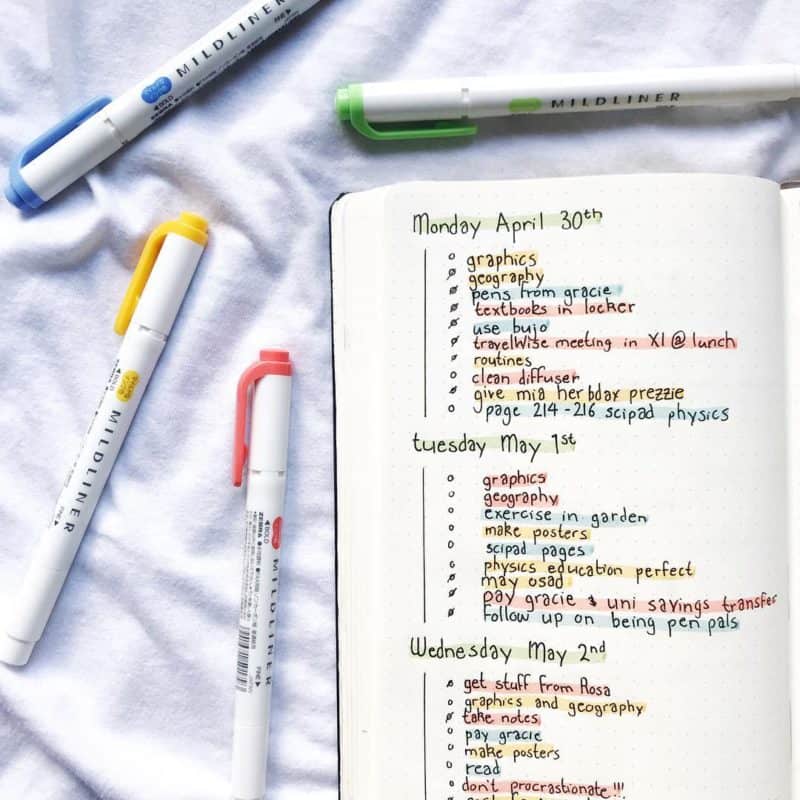 MILDLINER
◀BOLD
FINE▶
MILDLINER
Monday April 30th
graphics
geography
pens from gracie
textbooks in locker
use bujo
travelwise meeting in X1 @ lunch
routines
clean diffuser
give mia her bday prezzie
page 214-216 scipad physics
tuesday May 1st
graphics
geography
exercise in garden
make posters
scipad pages
physics education perfect
may osad
pay gracie & uni savings transfer
Follow up on being pen pals
Wednesday May 2nd
get stuff from Rosa
graphics and geography
take notes
pay gracie
make posters
read
don't procrastinate!!!
◀BOLD
MILDLINER
FINE▶
◀BOLD
ZEBRA
MILDLINER
FINE▶